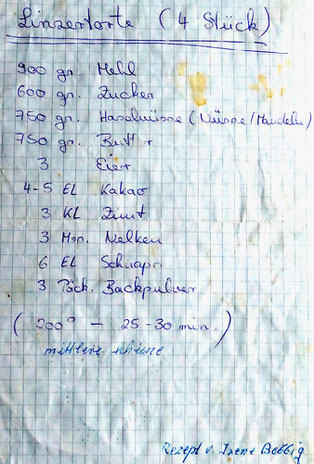 Linzertorte ( 4 Stück )
900 gr. Mehl
600 gr. Zucker
750 gr. Haselnüsse ( Nüsse / Mandeln )
750 gr. Butter
3 Eier
4-5 EL Kakao
3 KL Zimt
3 Msp. Nelken
6 EL Schnaps
3 Päck. Backpulver
( 200° - 25 - 30 min. )
mittlere schiene
Rezept v. Irene